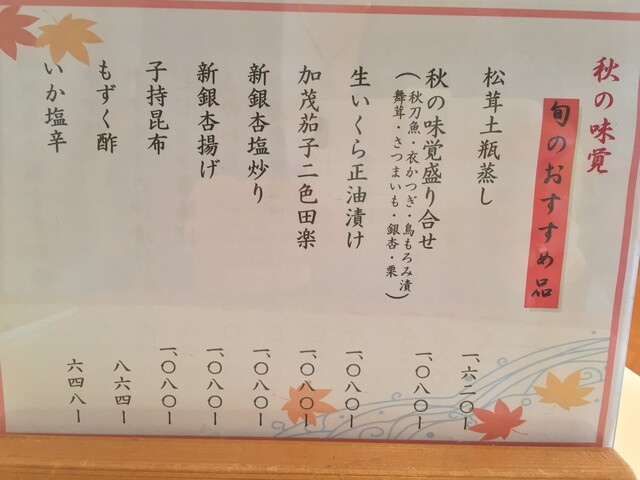 秋の味覚
旬のおすすめ品
松茸土瓶蒸し
一、六二〇ー
秋の味覚盛り合せ
（秋刀魚・衣かつぎ・鳥もろみ漬
舞茸・さつまいも・銀杏・栗）
一、〇八〇ー
生いくら正油漬け
一、〇八〇ー
加茂茄子二色田楽
一、〇八〇ー
新銀杏塩炒り
一、〇八〇ー
新銀杏揚げ
一、〇八〇ー
子持昆布
一、〇八〇ー
もずく酢
八六四ー
いか塩辛
六四八ー